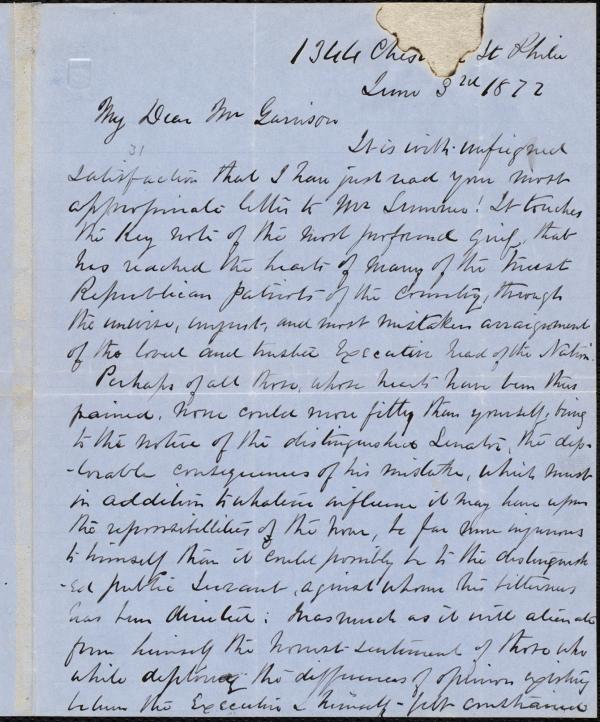 1344 Ches St Phila
June 3rd 1872
My Dear Mr Garrison
31
It is with unfeigned
satisfaction that I have just read your most
appropriate letter to Mr Sumner! It touches
the Key note of the most profound grief, that
has reached the hearts of many of the truest
Republican patriots of the Country, through
the unwise, unjust, and most mistaken arraignment
of the loved and trusted Executive head of the Nation.
Perhaps of all those, whose hearts have been thus
pained, none could more fitly than yourself, bring
to the notice of the distinguished Senator, the dep-
-lorable consequences of his mistake, which must
in addition to whatever influence it may have upon
the responsibilities of the hour, be far more injurious
to himself than it could possibly be to the distinguish
-ed public Servant, against whom his bitterness
has been directed: Inasmuch as it will alienate
from himself the honest sentiment of those who
while deploring the differences of opinion existing
between the Executive & himself - felt constrained